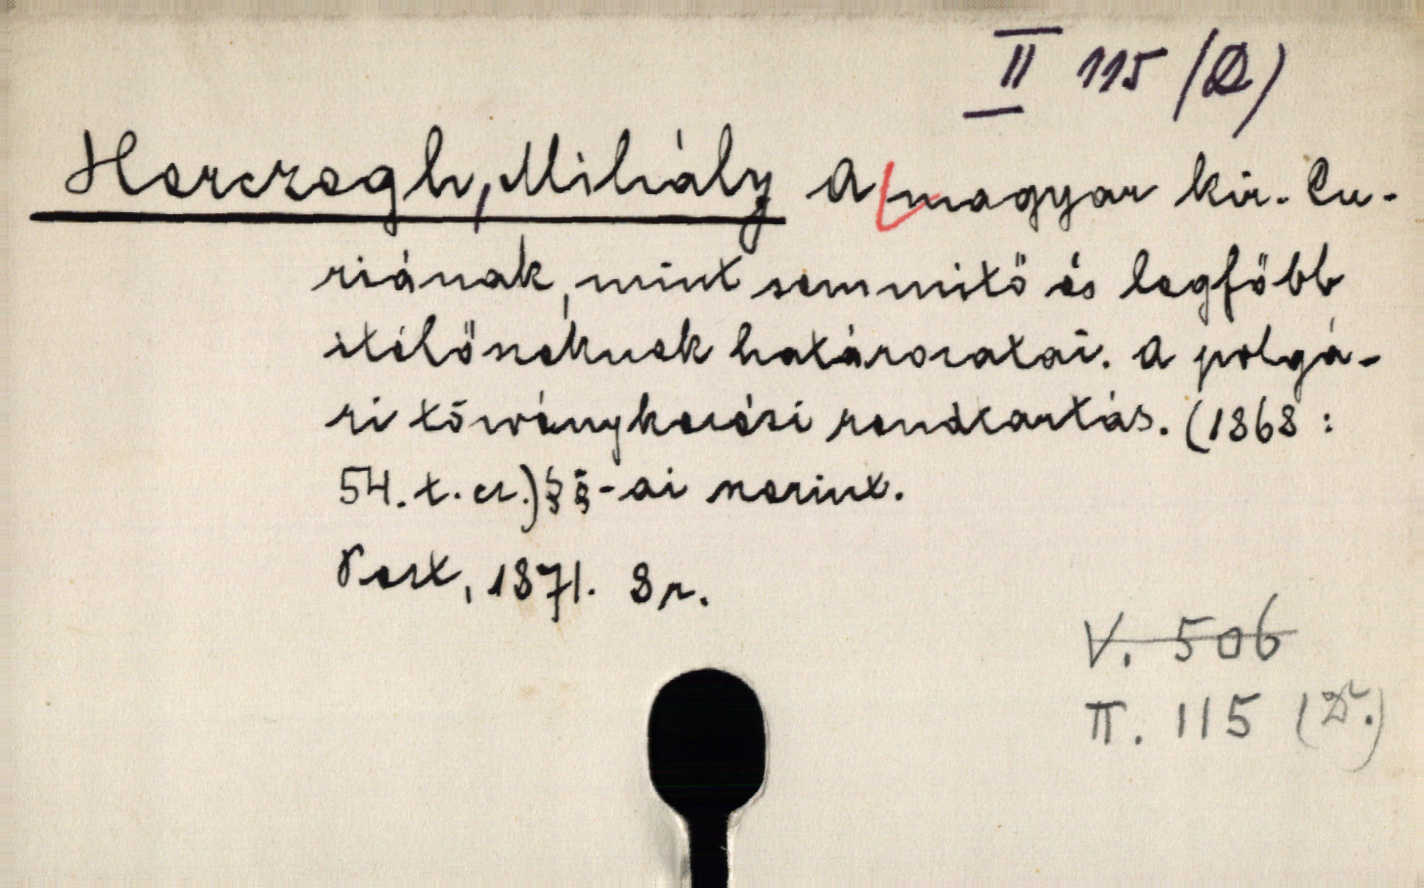 II 115 (D)
Herczegh, Mihály A magyar kir. Cu-
riának, mint semmitő és legfőbb
itélőszéknek határozatai. A polgá-
ri törvénykezési rendtartás. (1868:
54. t. cz.) §§-ai szerint.
Pest, 1871. 8r.
V. 506
II. 115 (D.)